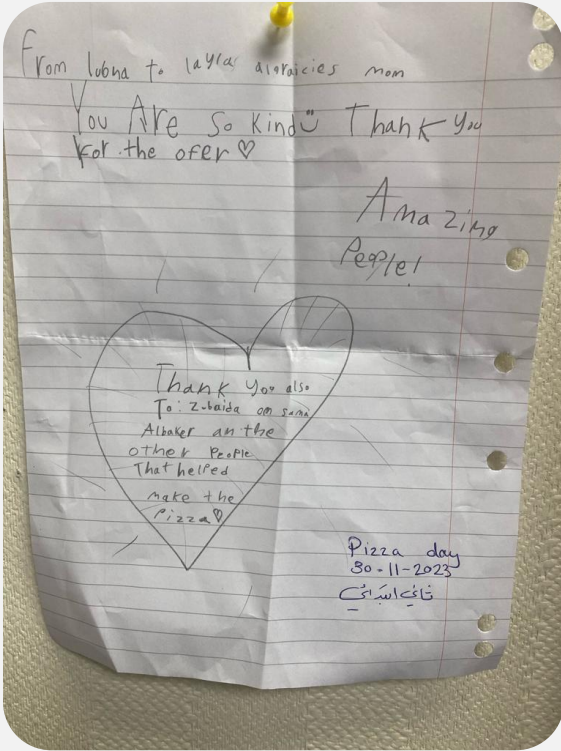 From lubna to layla mom
You Are So Kind Thank you
For the ofer ♡
Amazing
People!
Thank you also
To: Zubaida
Albaker an the
other People
That helped
make the
Pizza♡
Pizza day
30-11-2023
ثاني ابتدائي